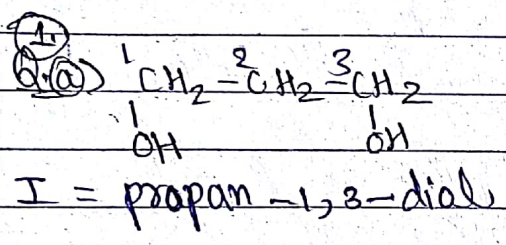 1.
Q.(a)) 1CH2 - 2CH2 - 3CH2
OH OH
I = propan - 1, 3 - dial,